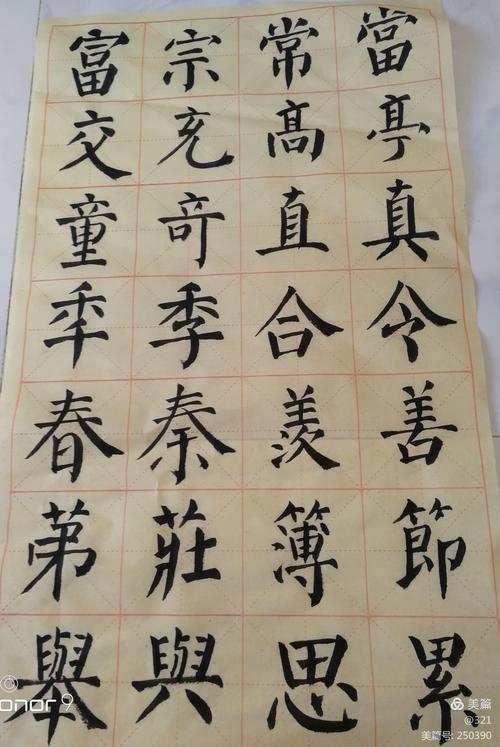 當亭真令善節累
常髙直合羨簿思
宗充竒季秦莊與
富交童秊春第舉
honor 9
美篇
@321
美篇号: 250390